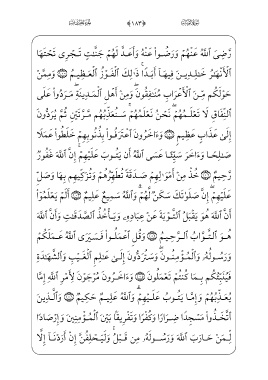 ﴿١٨٣﴾
رَّضِىَ ٱللَّهُ عَنْهُمْ وَرَضُوا۟ عَنْهُ وَأَعَدَّ لَهُمْ جَنَّٰتٍ تَجْرِى تَحْتَهَا
ٱلْأَنْهَٰرُ خَٰلِدِينَ فِيهَآ أَبَدًا ۚ ذَٰلِكَ ٱلْفَوْزُ ٱلْعَظِيمُ ۝ وَمِمَّنْ
حَوْلَكُم مِّنَ ٱلْأَعْرَابِ مُنَٰفِقُونَ ۖ وَمِنْ أَهْلِ ٱلْمَدِينَةِ ۖ مَرَدُوا۟ عَلَى
ٱلنِّفَاقِ لَا تَعْلَمُهُمْ ۖ نَحْنُ نَعْلَمُهُمْ ۚ سَنُعَذِّبُهُم مَّرَّتَيْنِ ثُمَّ يُرَدُّونَ
إِلَىٰ عَذَابٍ عَظِيمٍ ۝ وَءَاخَرُونَ ٱعْتَرَفُوا۟ بِذُنُوبِهِمْ خَلَطُوا۟ عَمَلًا
صَٰلِحًا وَءَاخَرَ سَيِّئًا عَسَى ٱللَّهُ أَن يَتُوبَ عَلَيْهِمْ ۚ إِنَّ ٱللَّهَ غَفُورٌ
رَّحِيمٌ ۝ خُذْ مِنْ أَمْوَٰلِهِمْ صَدَقَةً تُطَهِّرُهُمْ وَتُزَكِّيهِم بِهَا وَصَلِّ
عَلَيْهِمْ ۖ إِنَّ صَلَوٰتَكَ سَكَنٌ لَّهُمْ ۗ وَٱللَّهُ سَمِيعٌ عَلِيمٌ ۝ أَلَمْ يَعْلَمُوٓا۟
أَنَّ ٱللَّهَ هُوَ يَقْبَلُ ٱلتَّوْبَةَ عَنْ عِبَادِهِۦ وَيَأْخُذُ ٱلصَّدَقَٰتِ وَأَنَّ ٱللَّهَ
هُوَ ٱلتَّوَّابُ ٱلرَّحِيمُ ۝ وَقُلِ ٱعْمَلُوا۟ فَسَيَرَى ٱللَّهُ عَمَلَكُمْ
وَرَسُولُهُۥ وَٱلْمُؤْمِنُونَ ۖ وَسَتُرَدُّونَ إِلَىٰ عَٰلِمِ ٱلْغَيْبِ وَٱلشَّهَٰدَةِ
فَيُنَبِّئُكُم بِمَا كُنتُمْ تَعْمَلُونَ ۝ وَءَاخَرُونَ مُرْجَوْنَ لِأَمْرِ ٱللَّهِ إِمَّا
يُعَذِّبُهُمْ وَإِمَّا يَتُوبُ عَلَيْهِمْ ۗ وَٱللَّهُ عَلِيمٌ حَكِيمٌ ۝ وَٱلَّذِينَ
ٱتَّخَذُوا۟ مَسْجِدًا ضِرَارًا وَكُفْرًا وَتَفْرِيقًۢا بَيْنَ ٱلْمُؤْمِنِينَ وَإِرْصَادًا
لِّمَنْ حَارَبَ ٱللَّهَ وَرَسُولَهُۥ مِن قَبْلُ ۚ وَلَيَحْلِفُنَّ إِنْ أَرَدْنَآ إِلَّا